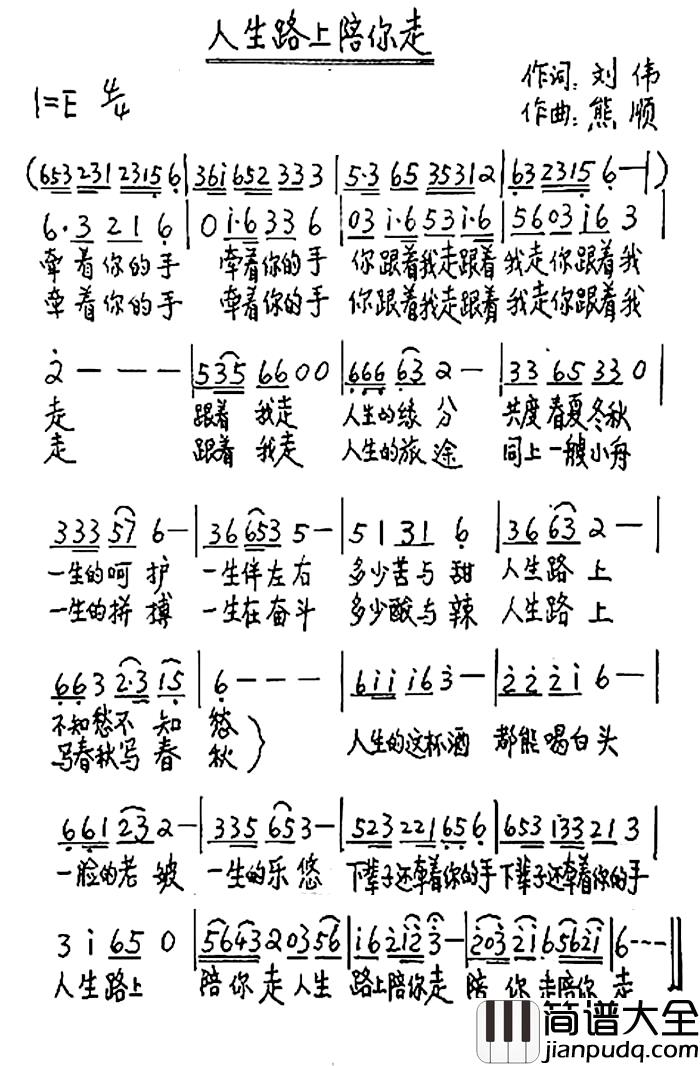 人生路上陪你走
作词:刘伟
1=E 4/4
作曲:熊顺
(653 231 2315 6 | 36i 652 333 | 5·3 65 35312 | 63 2315 6— | )
6·3 216 | 0 i·6 33 6 | 03 i·6 53 i·6 | 56 03 i6 3 |
牵着你的手 牵着你的手 你跟着我走跟着我走你跟着我
牵着你的手 牵着你的手 你跟着我走跟着我走你跟着我
2 — — — | 535 6600 | 666 63 2— | 33 65 33 0 |
走 跟着我走 人生的缘分 共度春夏冬秋
走 跟着我走 人生的旅途 同上一艘小舟
333 57 6— | 36 653 5— | 51 31 6 | 36 63 2— |
一生的呵护 一生伴左右 多少苦与甜 人生路上
一生的拼搏 一生在奋斗 多少酸与辣 人生路上
663 2·3 15 | 6 — — — | 6iii i6 3— | 2 2 2 i 6— |
不知愁不知愁 人生的这杯酒 都能喝白头
写春秋写春秋
661 23 2— | 335 653— | 523 221 656 | 653 i33 21 3 |
一脸的老皱 一生的乐悠 下辈子还牵着你的手 下辈子还牵着你的手
3 i 65 0 | 5643 2 03 56 | i6 2i2 3— | 203 2i 6 562i | 6 — — — ||
人生路上 陪你走人生 路上陪你走 陪你走陪你走
简谱大全
jianpudq.com